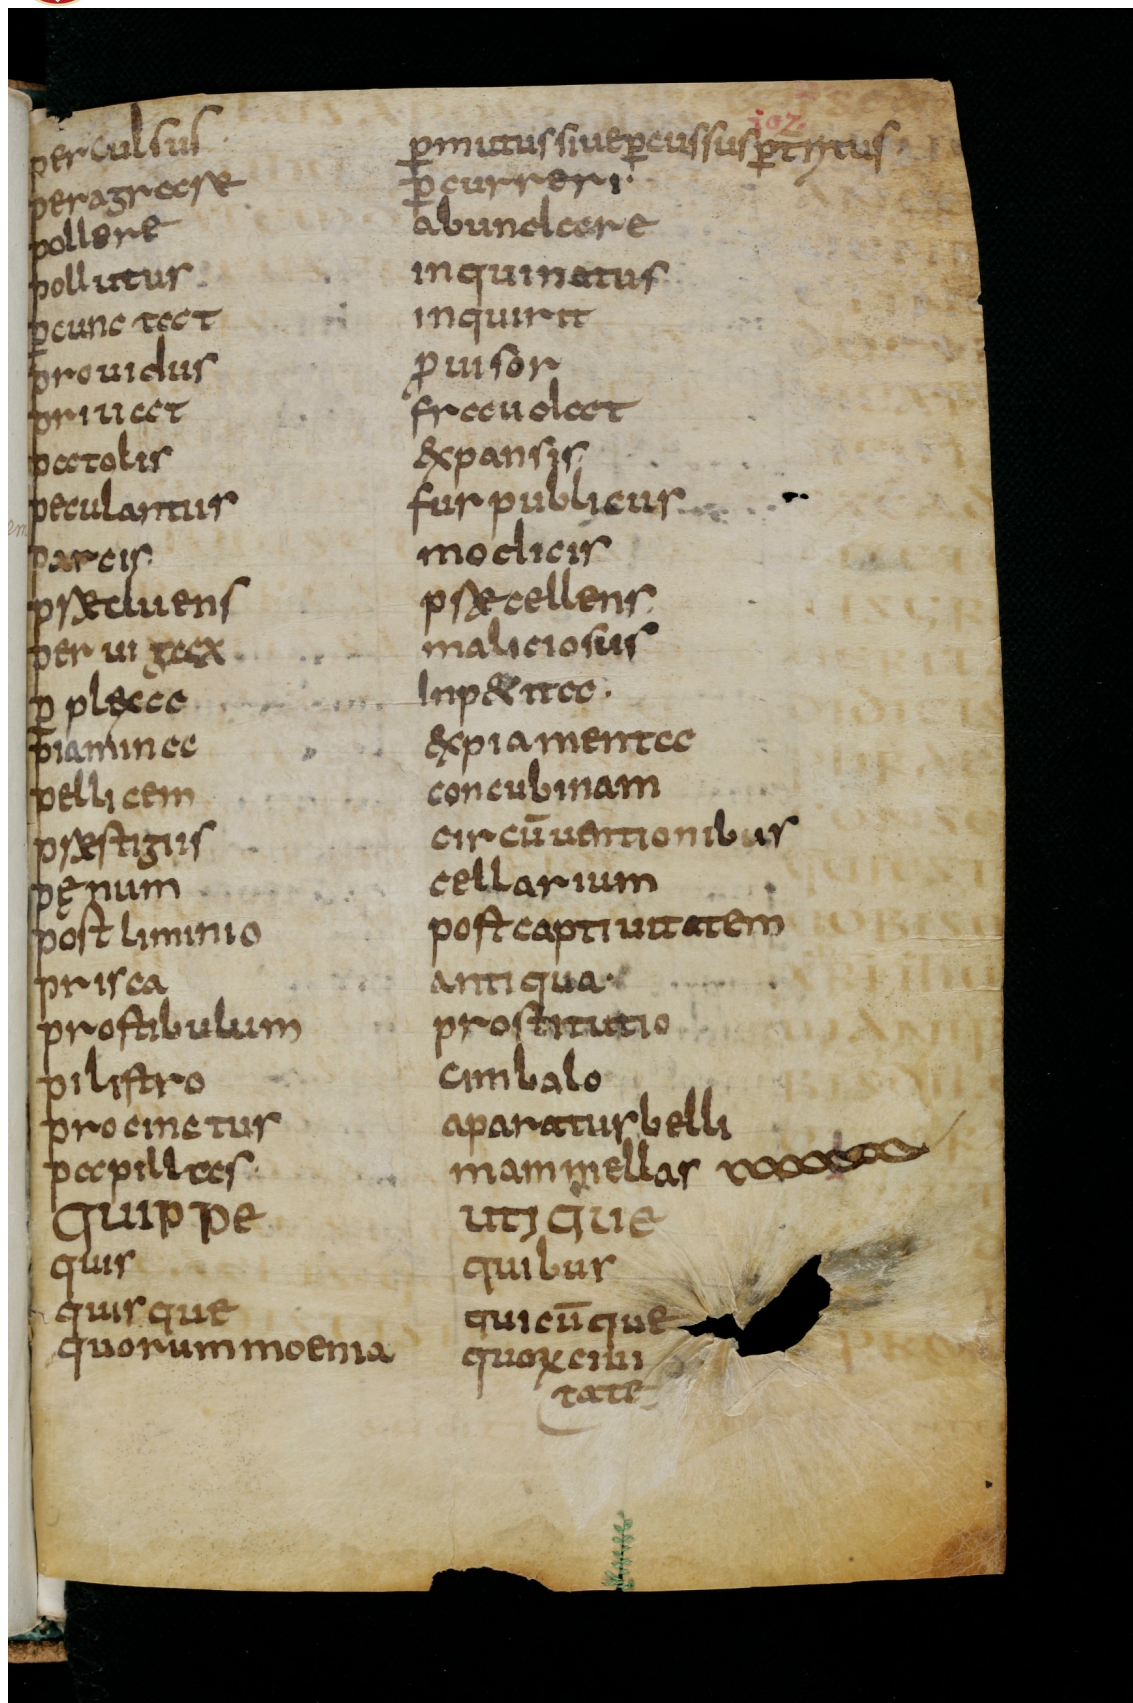 107.
perculsus p̲mutus siue p̲cussus p̲t̄ritus
peragrare p̲curreri.
pollere abundare
pollutus inquinatus
p̲cunctat inquirit
prouidus ꝓuisor
priuat fraudat
patolis expansis
peculantur fur publicus
parcis modicis
præcluens præcellens
peruigax maliciosus
p̲plexa Inpedita.
piamina expiamenta
pellicem concubinam
præstigiis circūuentionibus
pęnum cellarium
postliminio post captiuitatem
prisca antiqua.
prostibulum prostitutio
pilistro cimbalo
procinctur aparatur belli
papillas mammellas
Quippe utique
quis quibus
quisque quicūque
quorum moenia quoꝝ ciui
tate